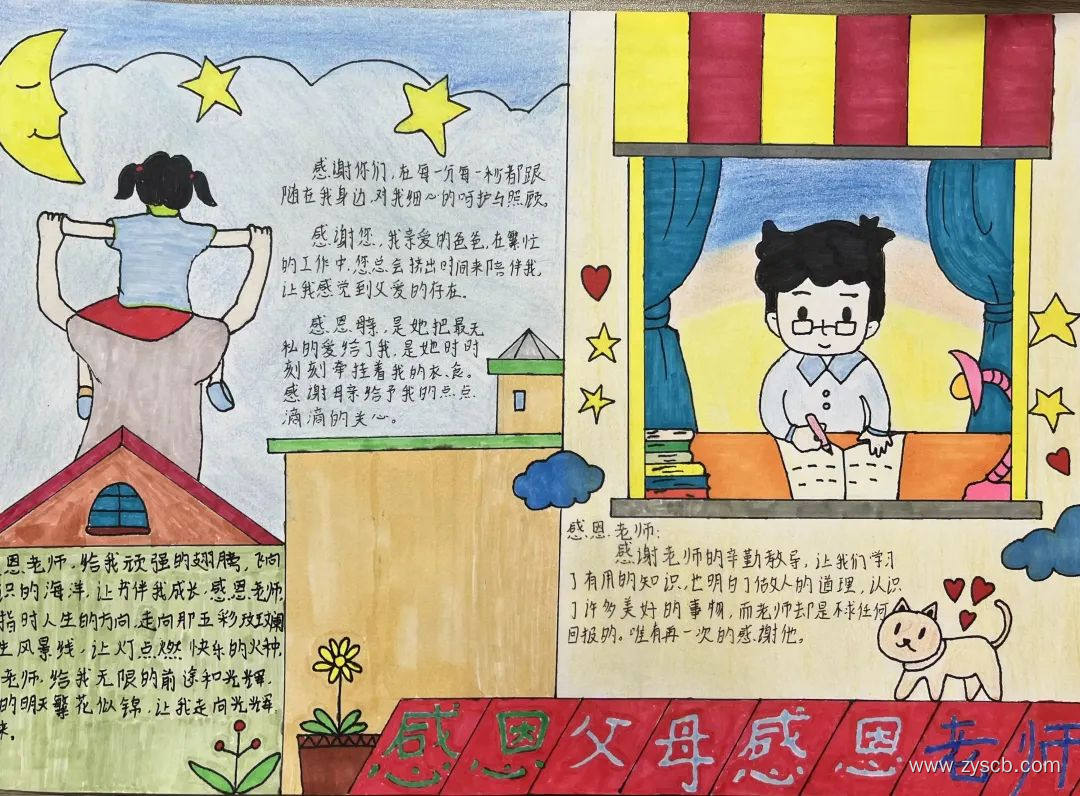 感谢你们,在每一分每一秒都跟
随在我身边,对我细心的呵护与照顾。
感谢您,我亲爱的爸爸,在繁忙
的工作中,您总会挤出时间来陪伴我,
让我感觉到父爱的存在。
感恩母亲,是她把最无
私的爱给了我,是她时时
刻刻牵挂着我的衣食。
感谢母亲给予我的点点
滴滴的关心。
恩老师,给我顽强的翅膀,飞向
识的海洋,让书伴我成长,感恩老师
指对人生的方向,走向那五彩斑斓
生风景线,让灯点燃快乐的火种,
老师,给我无限的前途和光辉,
的明天繁花似锦,让我走向光辉
来。
感恩老师:
感谢老师的辛勤教导,让我们学习
了有用的知识,也明白了做人的道理,认识
了许多美好的事物,而老师却是不求任何
回报的。唯有再一次的感谢他。
感恩父母感恩老师
www.zyscb.com